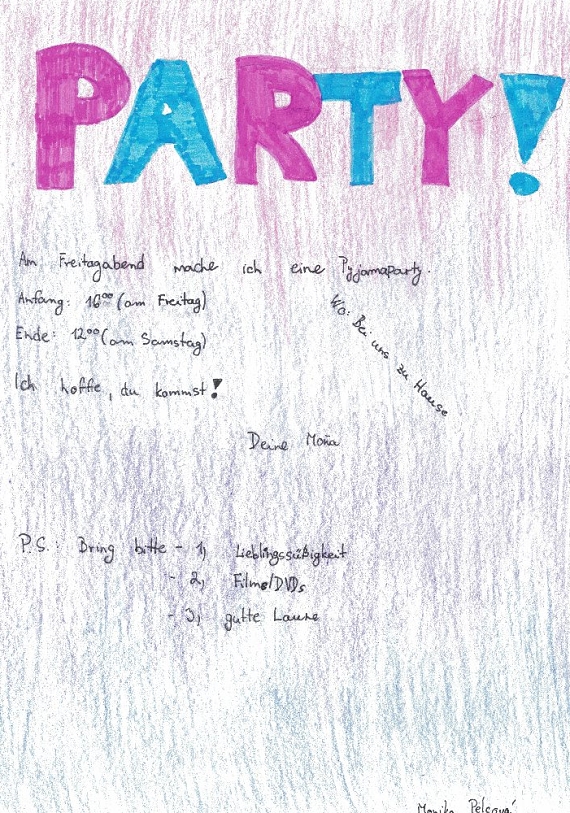 PARTY!
Am Freitagabend mache ich eine Pyjamaparty.
Anfang: 16⁰⁰ (am Freitag)
Wo: Bei uns zu Hause
Ende: 12⁰⁰ (am Samstag)
Ich hoffe, du kommst!
Deine Moňa
P.S.: Bring bitte - 1, Lieblingssüßigkeit
- 2, Films/DVDs
- 3, gutte Laune
Monika Pelcová